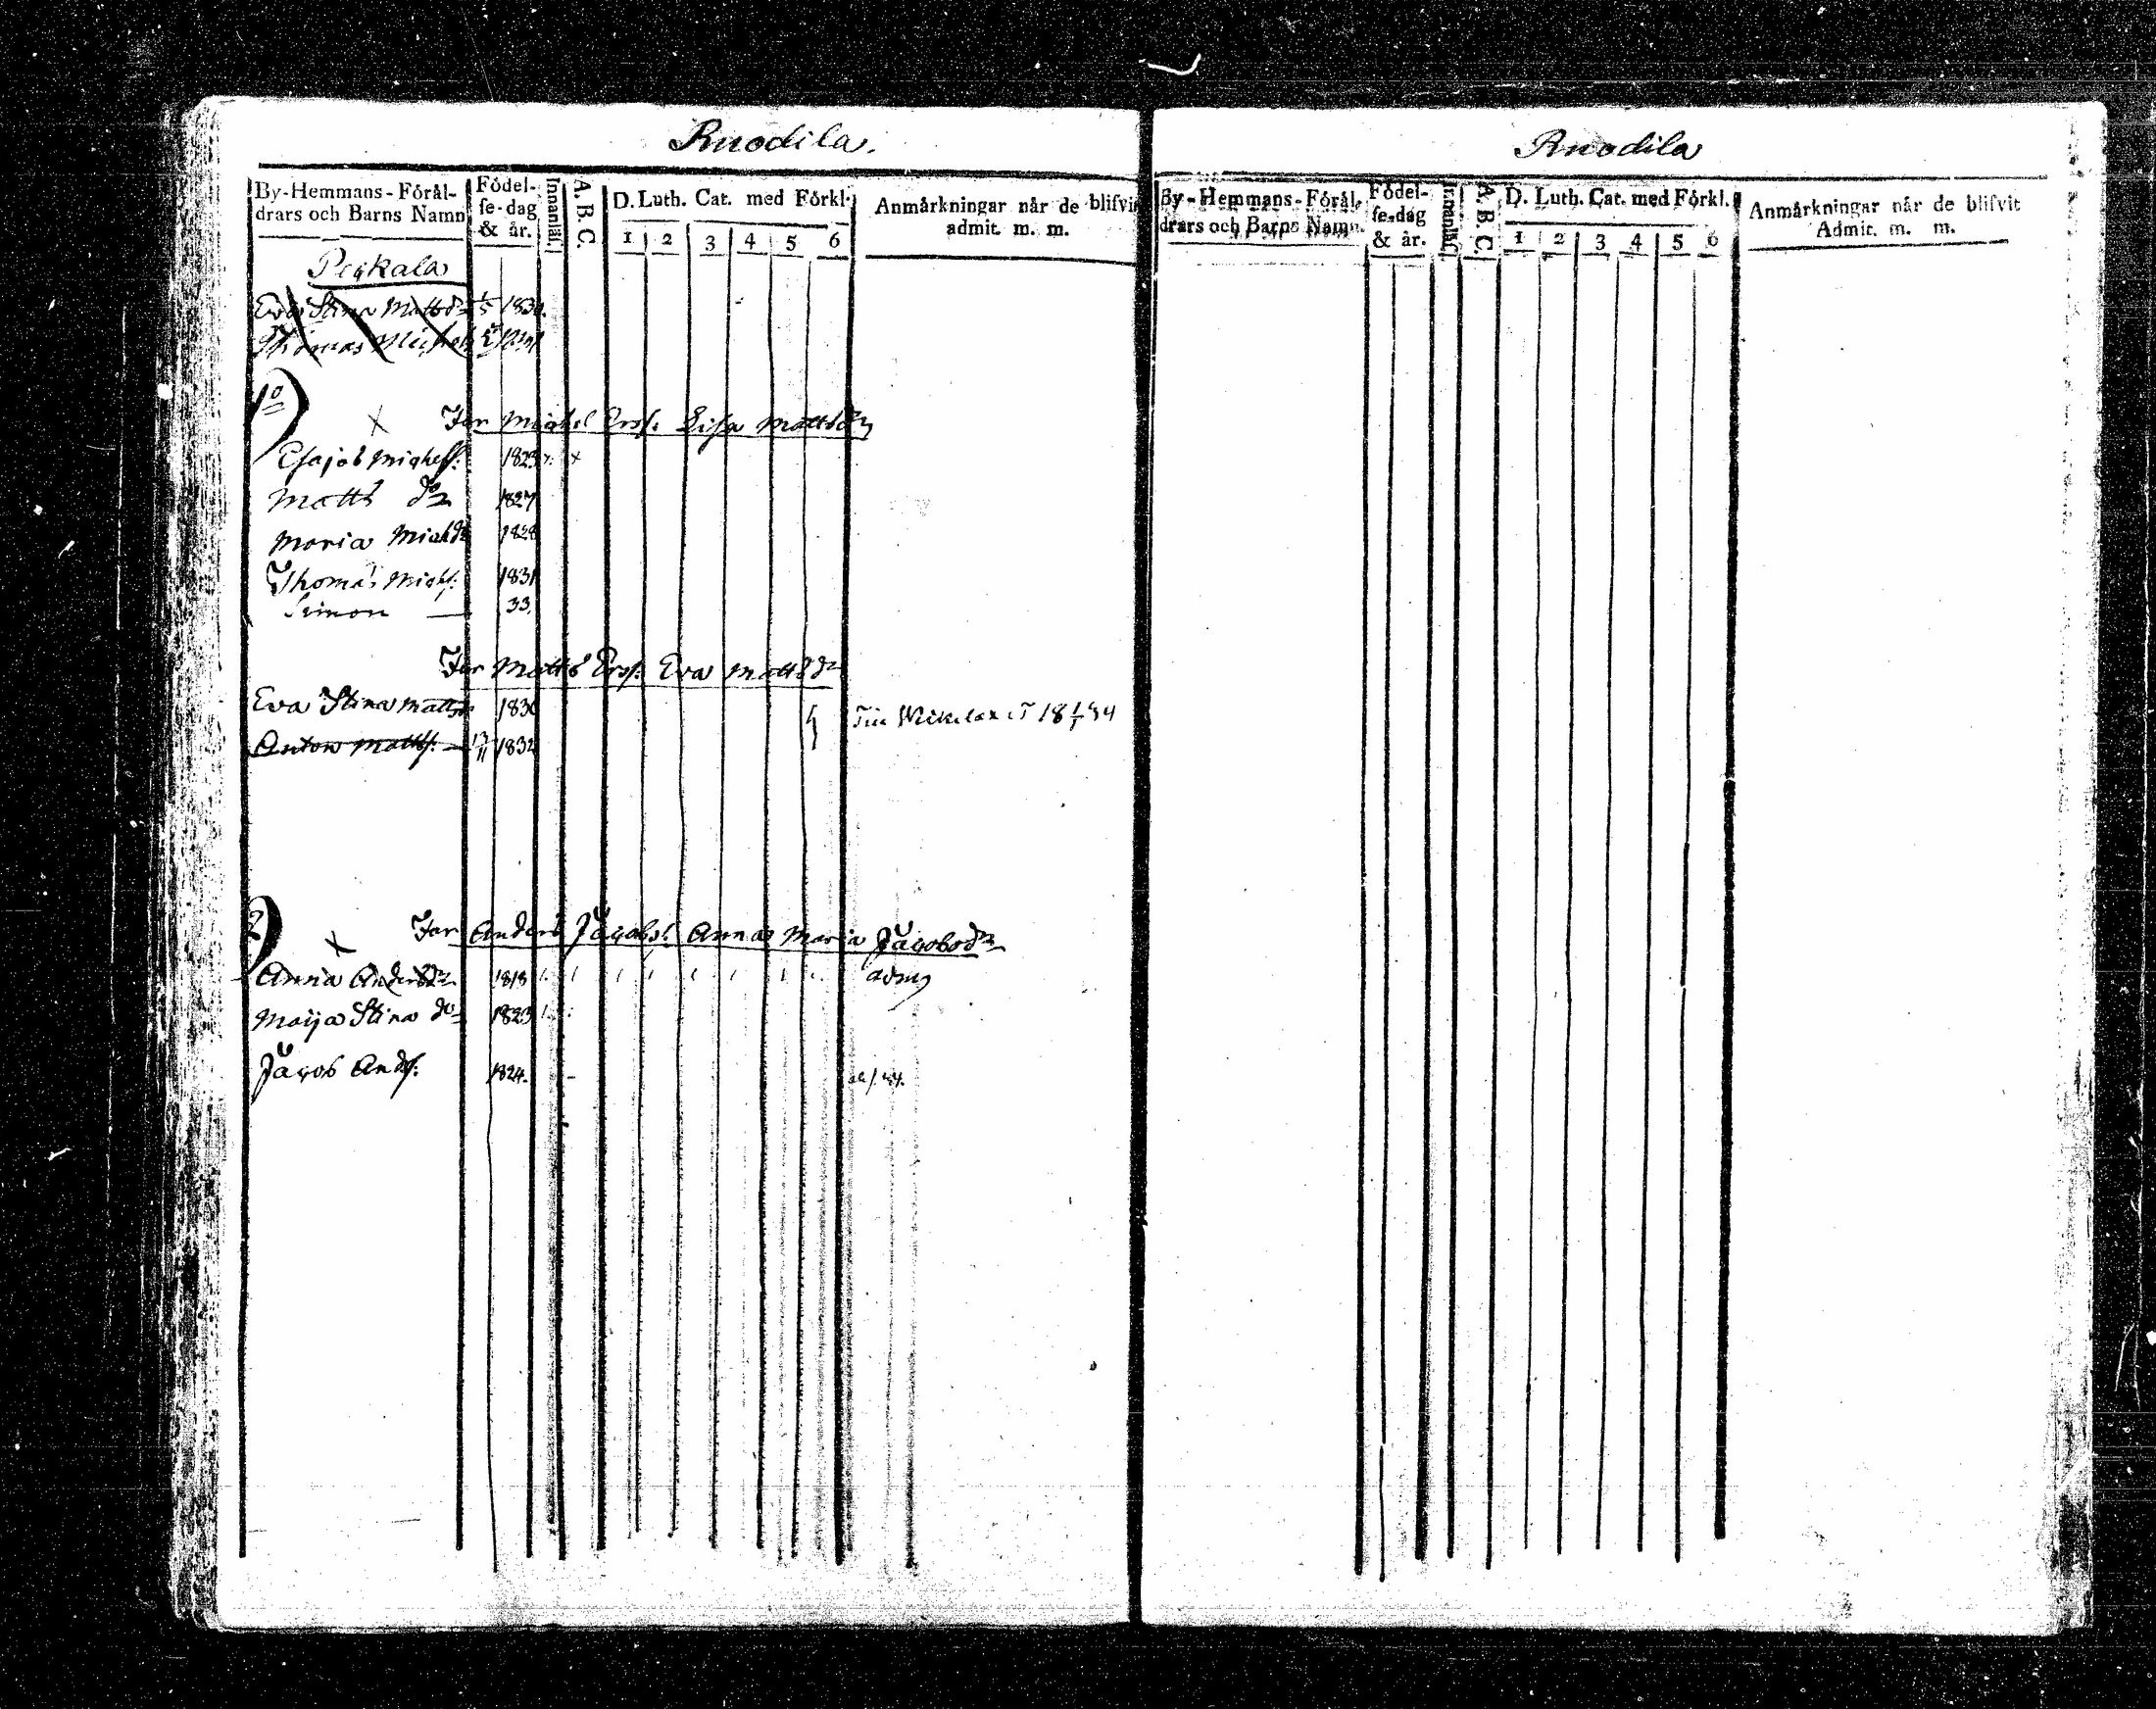 Ruodila.
By-Hemmans-Förål-
drars och Barns Namn
Födel-
se-dag
& år.
Innanläs.
A. B. C.
D. Luth. Cat. med Förkl.
1 2 3 4 5 6
Anmårkningar når de blifvit
admit. m. m.
Pegkala
Eva Stina Mattsdr 1/5 1830.
Thomas Michels
1o
Far Michel Ersf. Lisa Mattsdr
Esajas Michelsf. 1823
Matts do 1827
Maria Michdr 1828
Thomas Michs. 1831
Simon — 33.
Far Matts Ersf. Eva Mattsdr
Eva Stina Mattsdr 1830
Anton Mattsf. 13/11 1832
2
Far Anders Jacobs. Anna Maria Jacobsdr
Anna Andersdr 1818
Maija Stina do 1823
Jacob Andf. 1824.
Ruodila
By-Hemmans-Förål-
drars och Barns Namn.
Födel-
se-dag
& år.
Innanläs.
A. B. C.
D. Luth. Cat. med Förkl.
1 2 3 4 5 6
Anmårkningar når de blifvit
Admit. m. m.